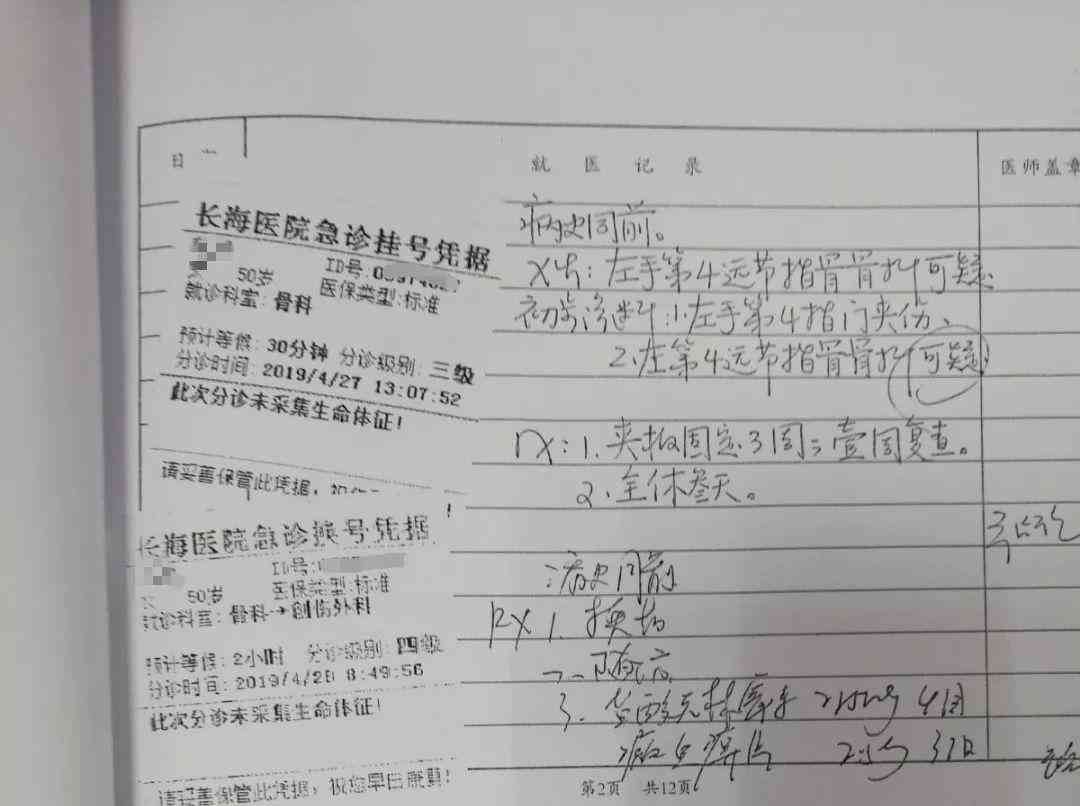 日
就医记录
医师盖章
长海医院急诊挂号凭据
ID号:
50岁
医保类型:标准
就诊科室:骨科
预计等候:30分钟 分诊级别:三级
分诊时间:2019/4/27 13:07:52
此次分诊未采集生命体征!
请妥善保管此凭据,
病史同前。
X片:左手第4远节指骨骨折可疑
初步诊断:1.左手第4指门夹伤、
2.左第4远节指骨骨折可疑
RX:1.夹板固定3周;壹周复查。
2.全休叁天。
长海医院急诊挂号凭据
ID号:
女 50岁
医保类型:标准
就诊科室:骨科→创伤外科
预计等候:2小时 分诊级别:四级
分诊时间:2019/4/28 8:49:56
此次分诊未采集生命体征!
请妥善保管此凭据,祝您早日康复!
:病史同前
RX 1.换药
二.随访
3.
第2页 共12页